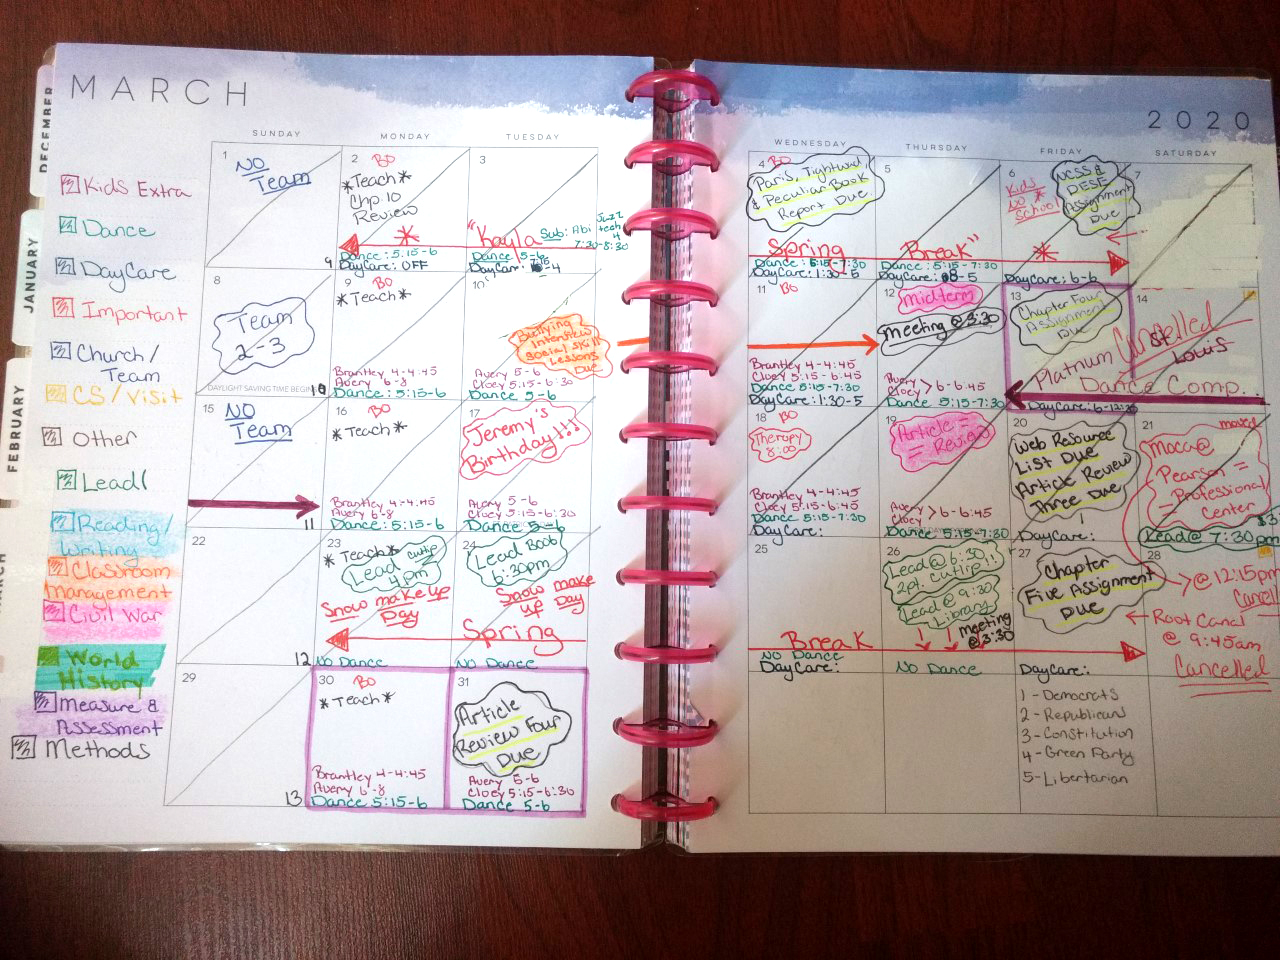 MARCH
2020
DECEMBER
JANUARY
FEBRUARY
SUNDAY
MONDAY
TUESDAY
WEDNESDAY
THURSDAY
FRIDAY
SATURDAY
Kids Extra
Dance
DayCare
Important
Church/
Team
CS/Visit
Other
Lead
Reading/
Writing
Classroom
Management
Civil War
World
History
Measure &
Assessment
Methods
1
NO
Team
9
2
BO
*Teach*
Chp 10
Review
Dance: 5:15-6
DayCare: OFF
3
"Kayla
Sub: Abi
Jazz
tech
4
7:30-8:30
Dance 5-6
DayCare:
4
BO
Paris, Tightwad,
& Peculiar Book
Report Due
Spring
Dance: 5:15-7:30
DayCare: 1:30-5
5
Break"
Dance: 5:15-7:30
DayCare: 8-5
6
Kids
No
School
NCSS &
DESE
Assignment
Due
DayCare: 6-6
7
8
Team
2-3
DAYLIGHT SAVING TIME BEGINS
10
9
BO
*Teach*
Brantley 4-4:45
Avery 6-8
Dance: 5:15-6
10
Bullying
Interview
Social Skill
Lessons
Due
Avery 5-6
Cloey 5:15-6:30
Dance 5-6
11
BO
Brantley 4-4:45
Cloey 5:15-6:45
Dance 5:15-7:30
DayCare: 1:30-5
12
midterm
meeting @ 3:30
Avery > 6-6:45
Cloey
Dance 5:15-7:30
13
Chapter Four
Assignment
Due
DayCare: 6-12:30
14
Cancelled
Platnum St. Louis
Dance Comp.
15
NO
Team
11
16
BO
*Teach*
Brantley 4-4:45
Avery 6-8
Dance: 5:15-6
17
Jeremy's
Birthday!!!
Avery 5-6
Cloey 5:15-6:30
Dance 5-6
18
BO
Therapy
8:00
Brantley 4-4:45
Cloey 5:15-6:45
Dance 5:15-7:30
DayCare:
19
Article
Review
Avery > 6-6:45
Cloey
Dance 5:15-7:30
20
Web Resource
List Due
Article Review
Three Due
DayCare:
21
moved
Moca @
Pearson
Professional
Center
Lead @ 7:30 pm
22
12
23
*Teach*
Lead cutip
4pm
Snow make up
Day
No Dance
24
Lead Book
6:30pm
Snow make
up Day
Spring
No Dance
25
Break
No Dance
DayCare:
26
Lead @ 6:30
2pt. cutip!!
Lead @ 9:30
Library
meeting
@ 3:30
No Dance
27
Chapter
Five Assignment
Due
DayCare:
28
@ 12:15pm
Root Canal
@ 9:45am
Cancelled
29
13
30
BO
*Teach*
Brantley 4-4:45
Avery 6-8
Dance 5:15-6
31
Article
Review Four
Due
Avery 5-6
Cloey 5:15-6:30
Dance 5-6
1 - Democrats
2 - Republicans
3 - Constitution
4 - Green Party
5 - Libertarian